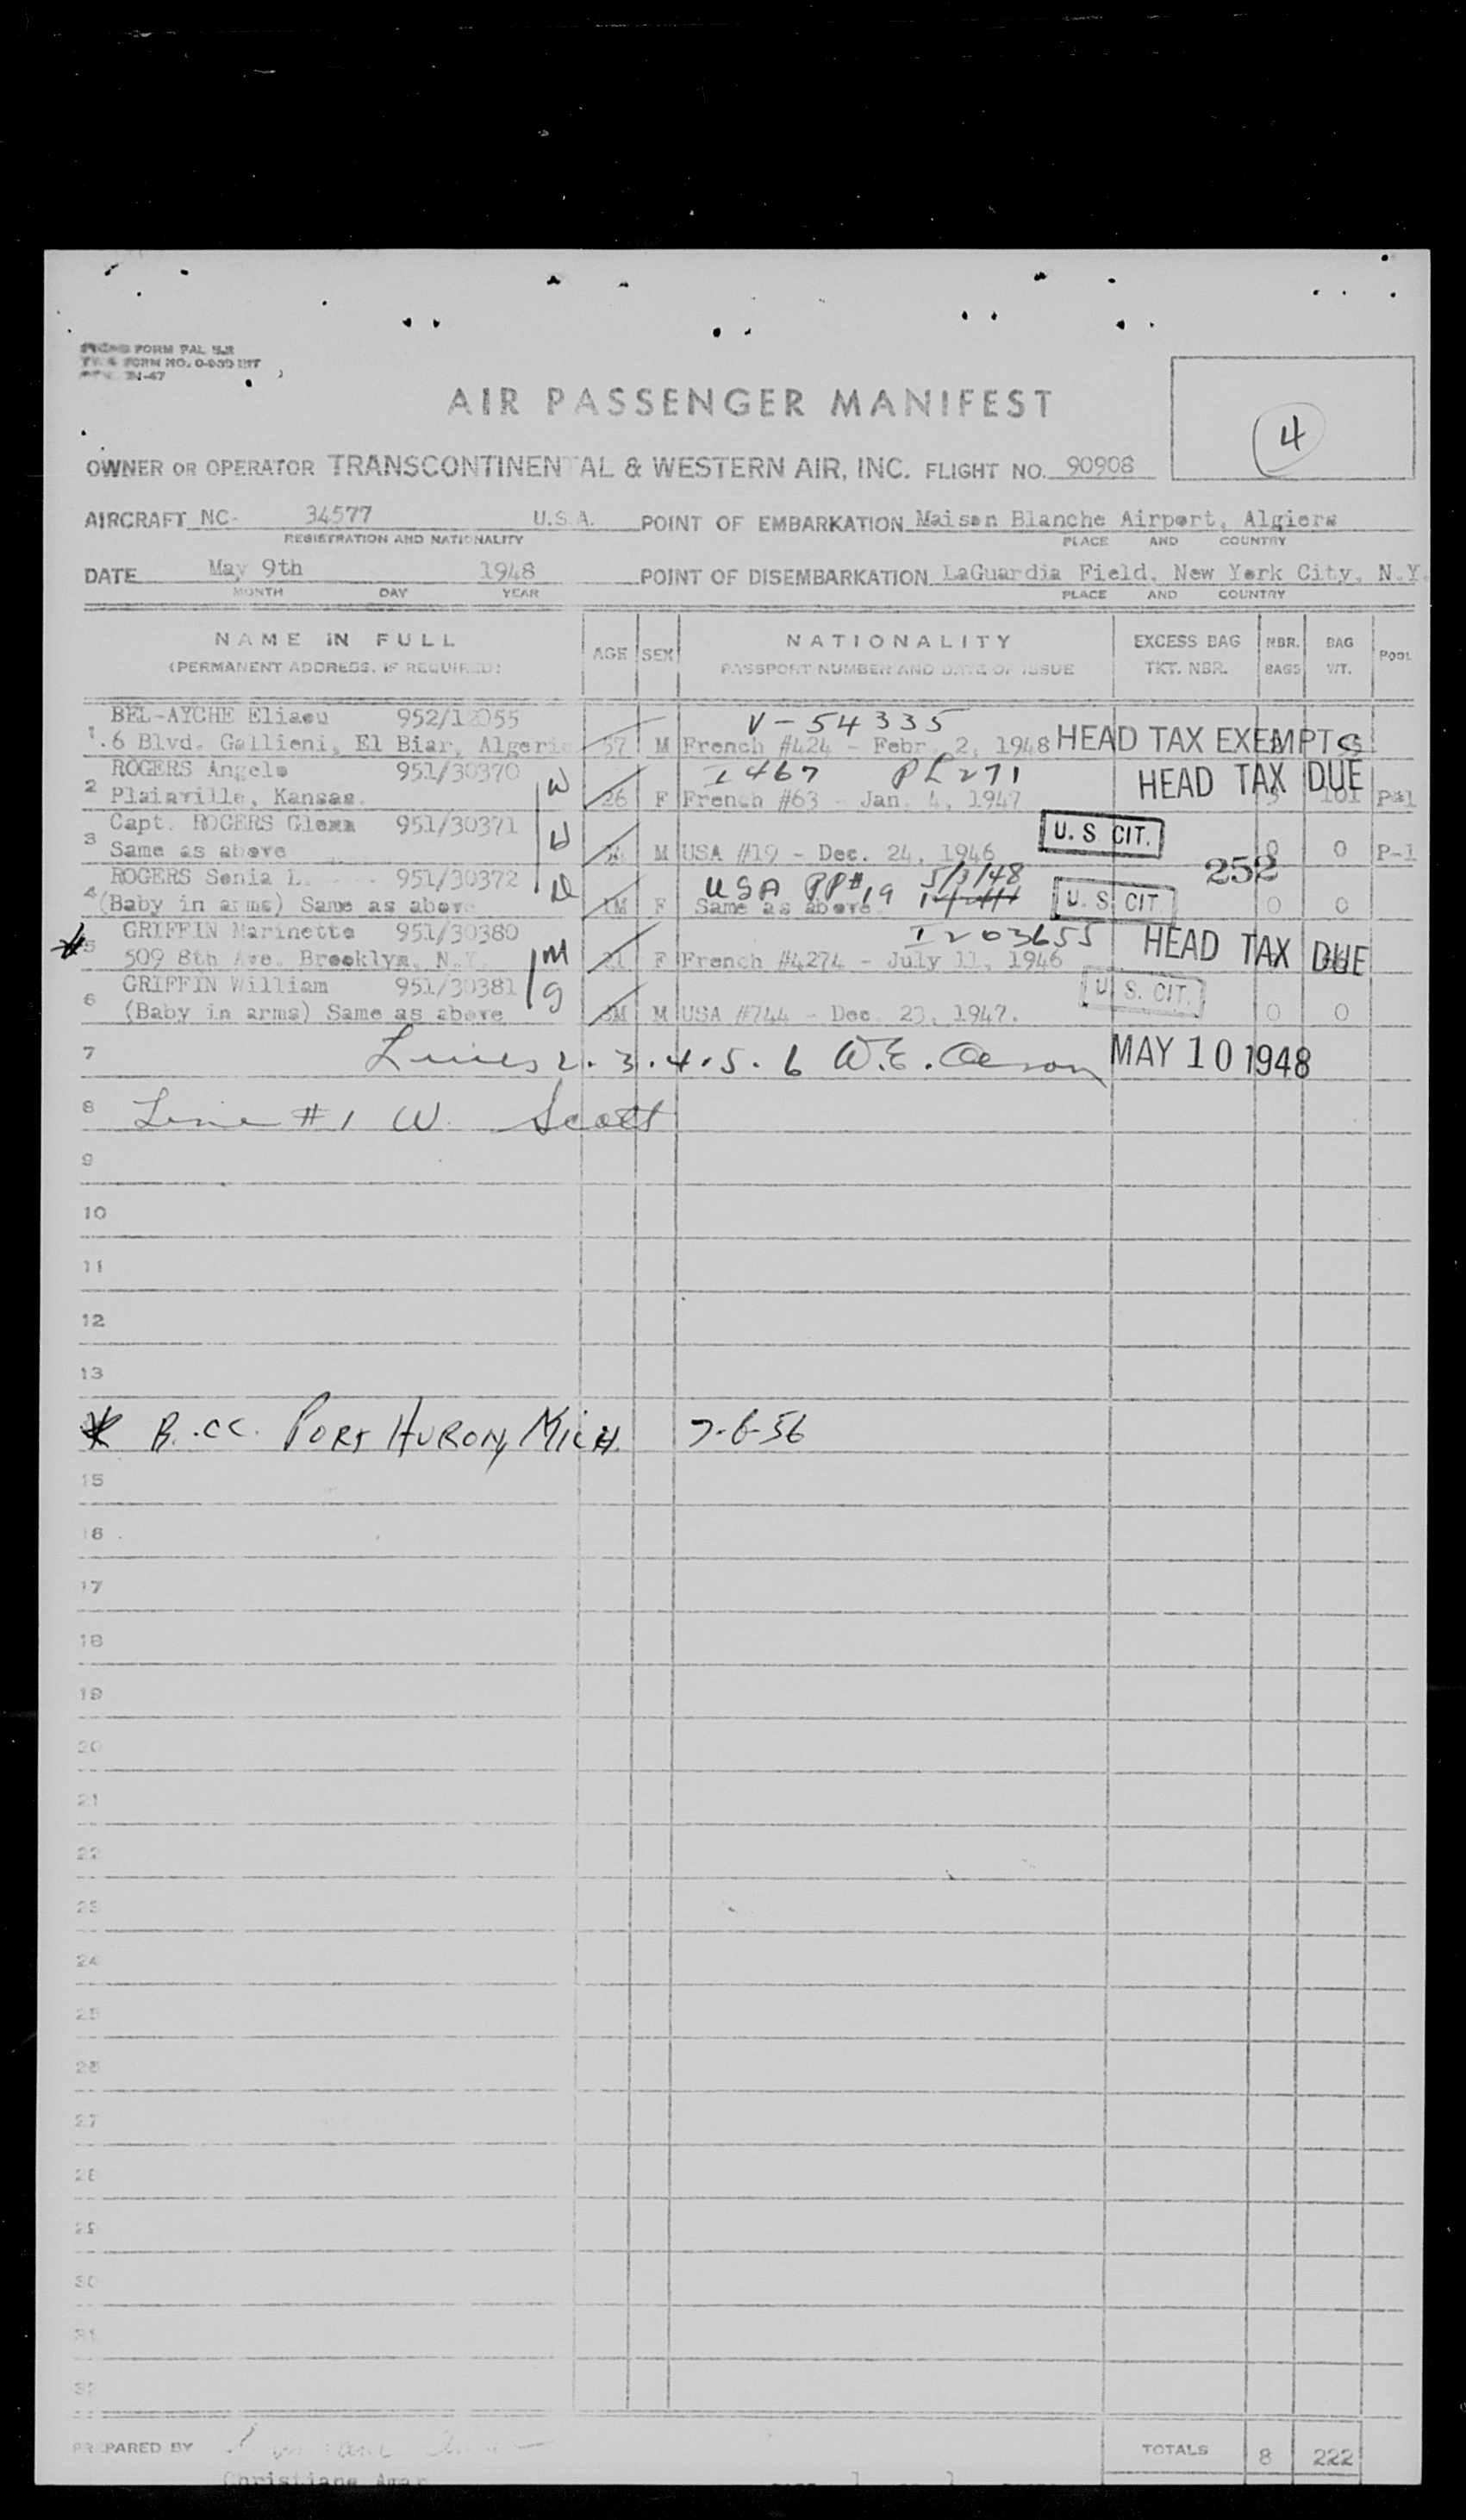 FORM NO. 0-939 INT
AIR PASSENGER MANIFEST
4
OWNER OR OPERATOR TRANSCONTINENTAL & WESTERN AIR, INC. FLIGHT NO. 90908
AIRCRAFT NC- 34577 U.S.A. POINT OF EMBARKATION Maison Blanche Airport, Algiers
REGISTRATION AND NATIONALITY PLACE AND COUNTRY
DATE May 9th 1948 POINT OF DISEMBARKATION LaGuardia Field, New York City, N.Y.
MONTH DAY YEAR PLACE AND COUNTRY
NAME IN FULL AGE SEX NATIONALITY EXCESS BAG NBR. BAG POOL
(PERMANENT ADDRESS, IF REQUIRED) PASSPORT NUMBER AND DATE OF ISSUE TKT. NBR. BAGS WT.
BEL-AYCHE Eliaou 952/12055 V-54335
1. 6 Blvd. Gallieni, El Biar, Algerie 57 M French #424 - Febr. 2, 1948 HEAD TAX EXEMPT
ROGERS Angele 951/30370 W I 467 PL 271
2 Plainville, Kansas. 26 F French #63 - Jan. 4, 1947 HEAD TAX DUE 101 P-1
Capt. ROGERS Glenn 951/30371 W U.S. CIT.
3 Same as above M USA #19 - Dec. 24, 1946 0 0 P-1
252
ROGERS Senia L. 951/30372 W USA PP# 19 5/3/48
4 (Baby in arms) Same as above 1M F Same as above. U.S. CIT. 0 0
GRIFFIN Marinette 951/30380 M I 203655
5 509 8th Ave. Brooklyn, N.Y. 21 F French #4274 - July 11, 1946 HEAD TAX DUE
GRIFFIN William 951/30381 G U.S. CIT.
6 (Baby in arms) Same as above 8M M USA #744 - Dec. 23, 1947. 0 0
7 Lines 2.3.4.5.6 W.E. MAY 10 1948
8 Line #1 W. Scott
9
10
11
12
13
* R.CC. PORT HURON, MICH. 7-6-56
15
16
17
18
19
20
21
22
23
24
25
26
27
28
29
30
31
32
PREPARED BY TOTALS 8 222
Christiane Amar